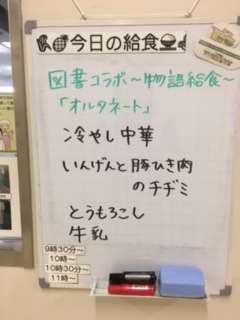 今日の給食
図書コラボ～物語給食～
「オルタネート」
冷やし中華
いんげんと豚ひき肉
のチヂミ
とうもろこし
牛乳
9時30分～
10時～
10時30分～
11時～